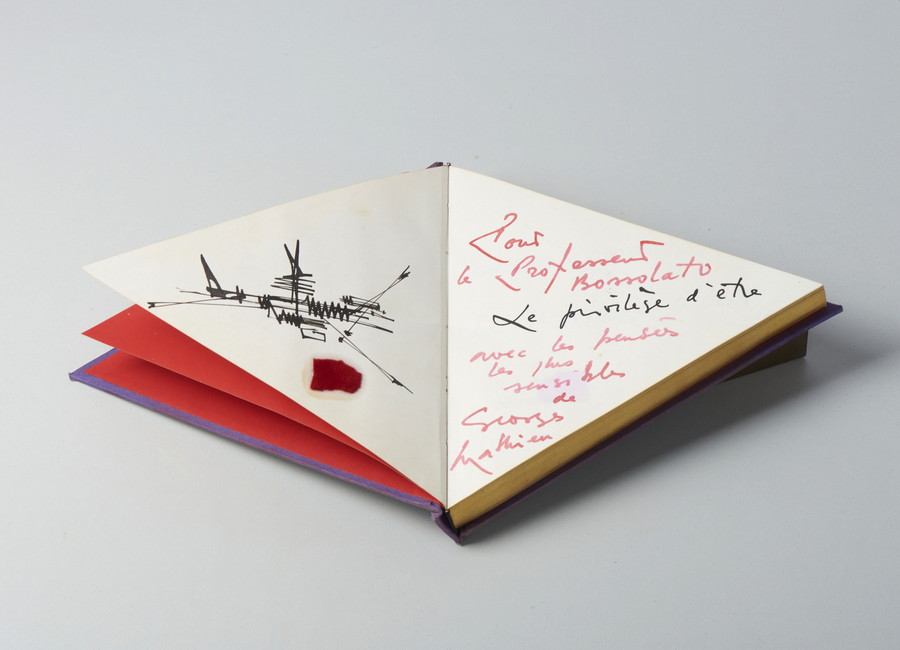 Pour
le Professeur
Bossolato
Le privilège d'être
avec les pensées
les plus
sensibles
de
Georges
Mathieu